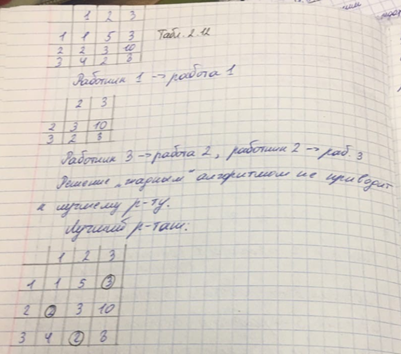 1 2 3
1 1 5 3 Табл. 2.12
2 2 3 10
3 4 2 3
Работник 1 → работа 1
2 3
2 3 10
3 2 3
Работник 3 → работа 2, работник 2 → раб. 3
Решение „жадным" алгоритмом не приводит
к лучшему р-ту.
Лучший р-тат:
1 2 3
1 1 5 3
2 2 3 10
3 4 2 3